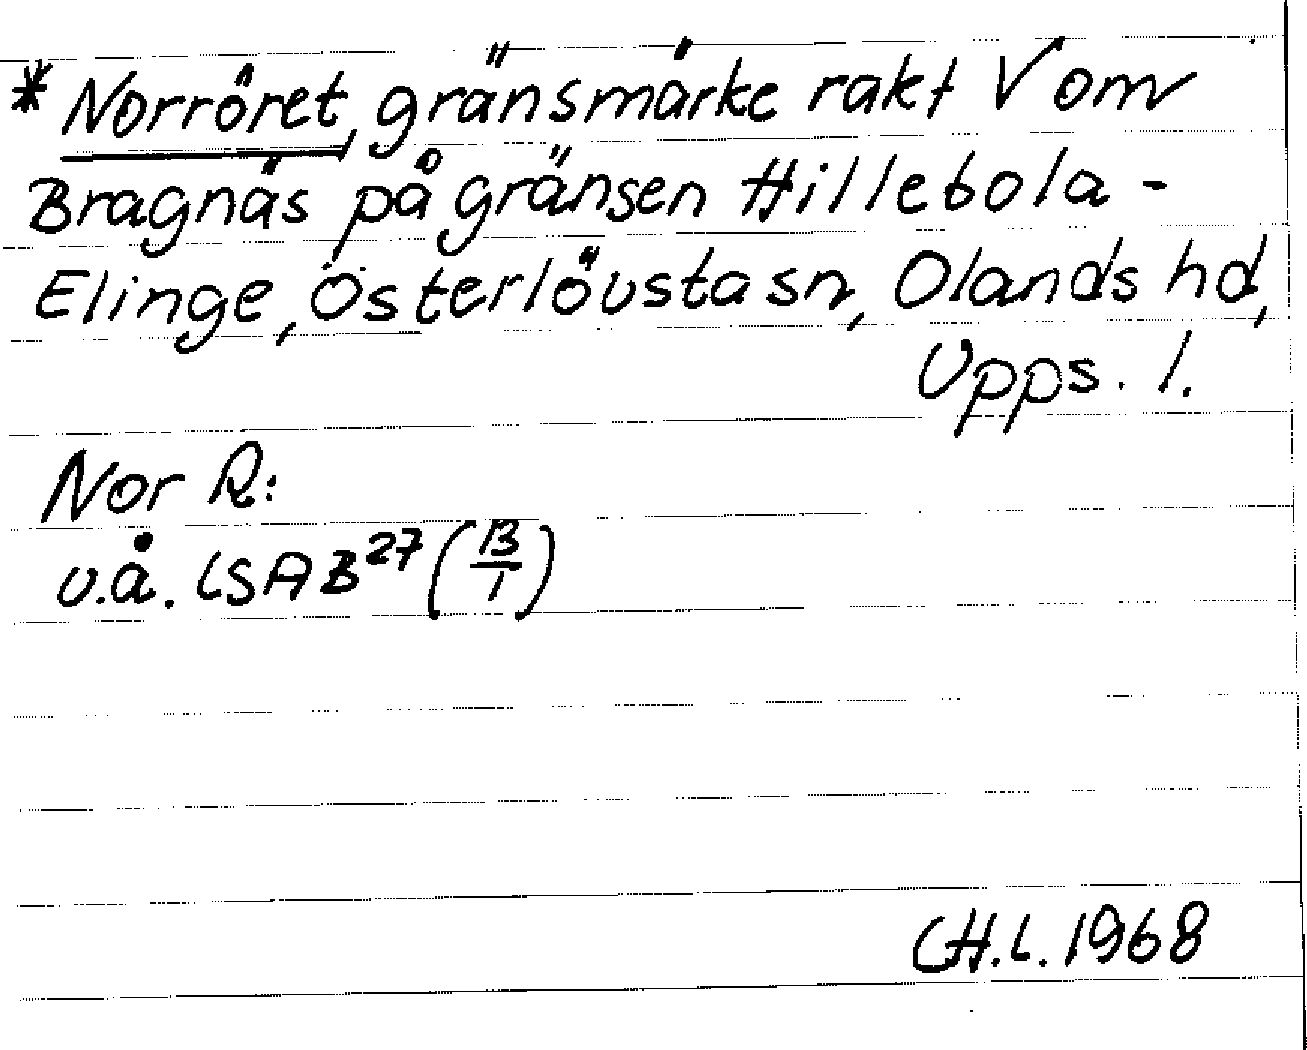 * Norröret, gränsmärke rakt V om
Bragnäs på gränsen Hillebola-
Elinge, Österlövsta sn, Olands hd,
Upps. l.
Nor R:
u.å. LSA B27 (B/1)
CH.L. 1968